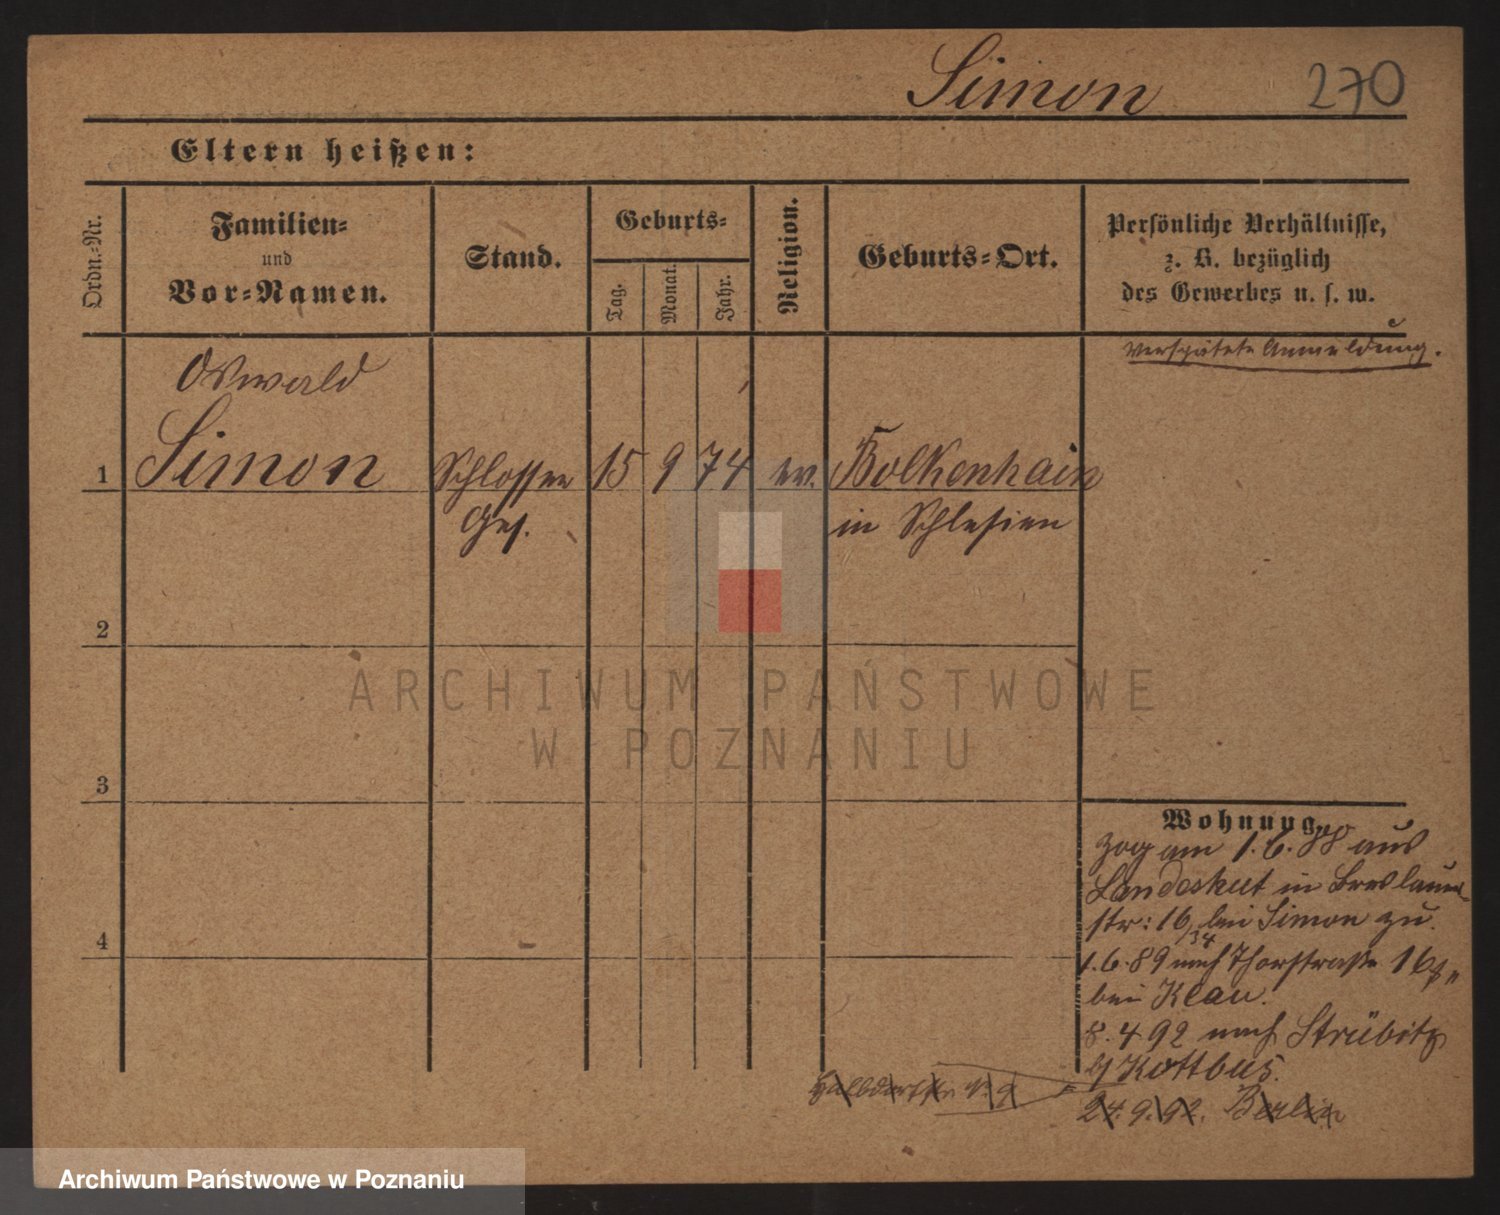 Simon 270
Eltern heißen:
Ordn.-Nr.
Familien-
und
Vor-Namen.
Stand.
Geburts-
Tag.
Monat.
Jahr.
Religion.
Geburts-Ort.
Persönliche Verhältnisse,
z. B. bezüglich
des Gewerbes u. s. w.
Verspätete Anmeldung.
Oswald
1 Simon Schlosser 15 9 74 ev. Bolkenhain
Ges. in Schlesien
2
3
4
Wohnung
zog am 1.6.88 aus
Landeshut in Breslauer
str: 16, bei Simon zu.
34
1.6.89 nach Thorstraße 16
bei Klau.
8.4.92 nach Strübitz
b/ Kottbus.
24.9.92. Berlin
ARCHIWUM PAŃSTWOWE
W POZNANIU
Archiwum Państwowe w Poznaniu